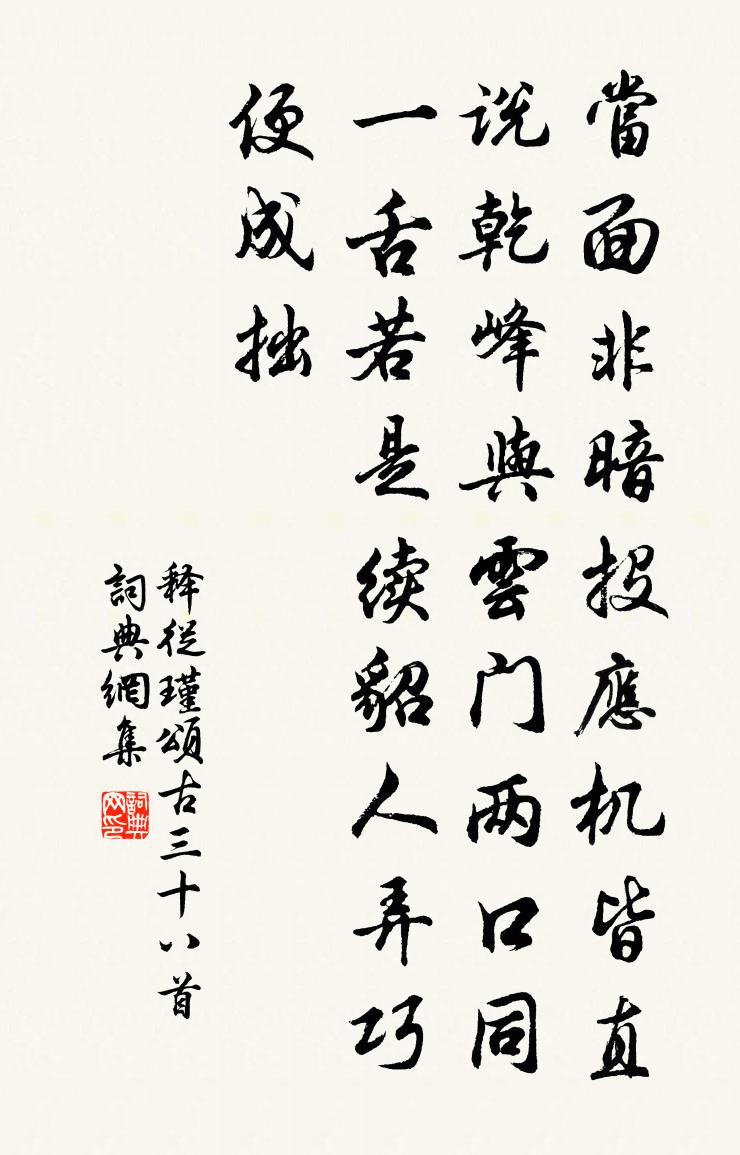 當面非暗投應机皆直
说乾峰與雲门两口同
一舌若是续貂人弄巧
便成拙
释從瑾頌古三十八首
詞典網集
詞典
网印